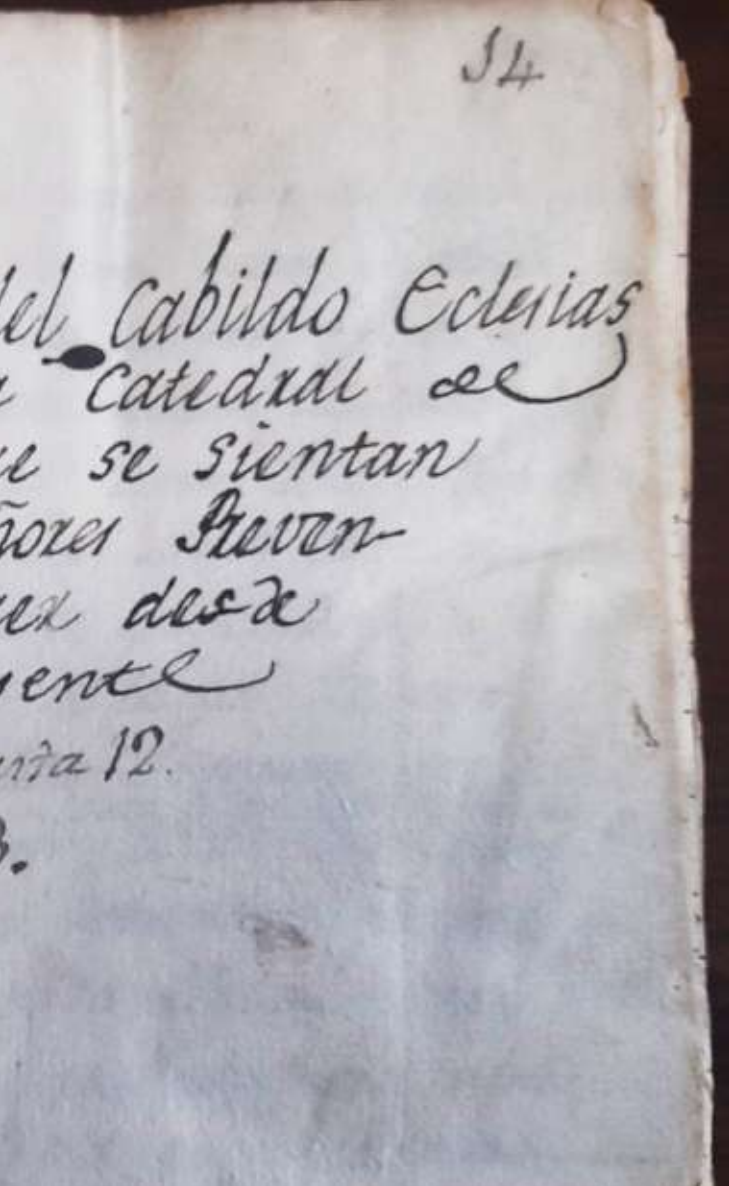 14
del Cabildo Eclesias
Catedral de
se sientan
ñores Preven-
desde
12.